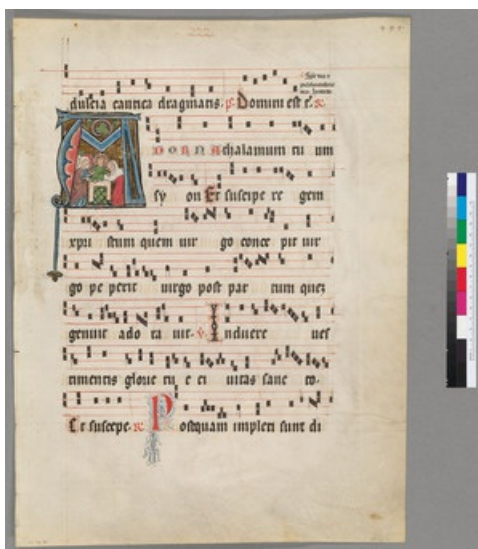 dulcia cantica dragmatis. ps. Domini est t. R.
A DORNA thalamum tu um
sy on Et suscipe re gem
xpri stum quem uir go conce pit uir
go pe perit uirgo post par tum quez
genuit ado ra uit. v. Induere ues
timentis glorie tu e ci uitas sanc to.
Et suscipe. R. Postquam impleti sunt di